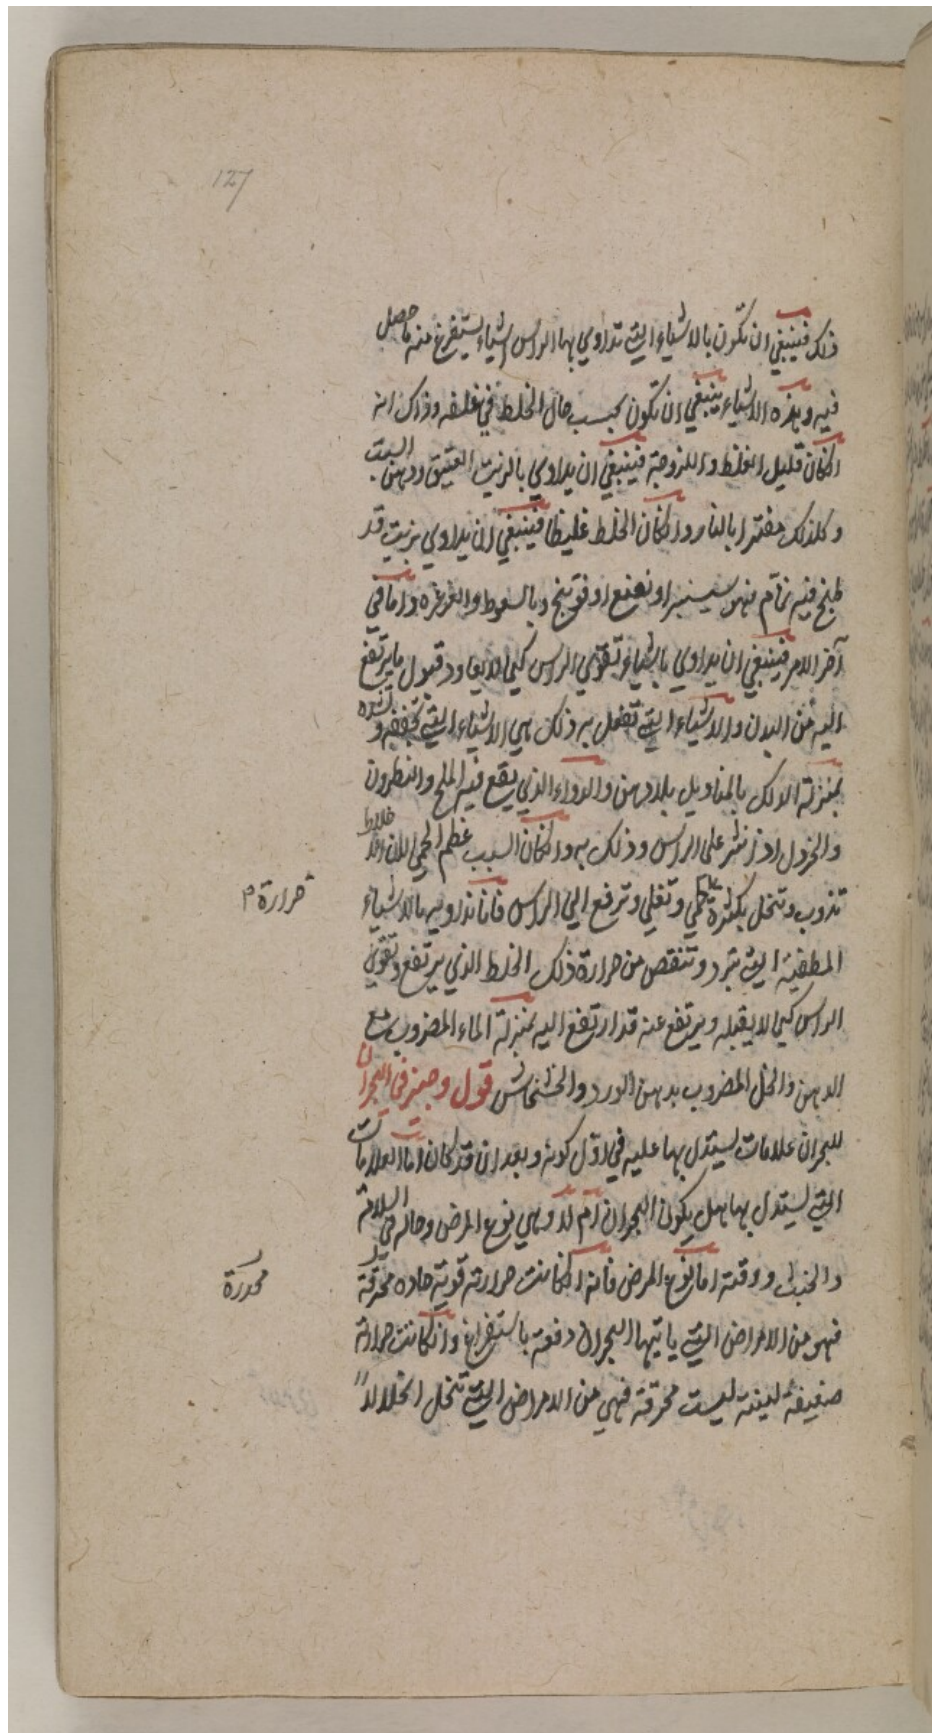 127
ذلك فينبغي ان تكون بالاشياء التي تداوي بها الراس اشياء يستفرغ منه ما حصل
فيه وبهذه الاشياء ينبغي ان تكون بحسب حال الخلط في غلظه وذاك انه
انكان قليل الغلظ واللزوجة فينبغي ان يداوي بالزيت العتيق ودهن الشبت
وكذلك مفترا بالنار وانكان الخلط غليظا فينبغي ان يداوي بزيت قد
طبخ فيه نمام فهو سيسنبر او نعنع او فوتنج وبالسعوط والغرغره واما في
آخر الامر فينبغي ان يداوي باشياء تقوي الراس كي لا يعاود قبول ما يرتفع
اليه من البدن والاشياء التي تفعل به ذلك هي الاشياء التي تجففه و تشده
بمنزلة الدلك بالمناديل بلا دهن والدواء الذي يقع فيه الملح والنطرون
والخردل اذا نثر على الراس ودلك به وانكان السبب عظم الحمي لان اخلاطا
تذوب وتنحل بكثرة الحمي وتغلي وترفع الي الراس فانا نداويه بالاشياء
حرارة م
المطفية التي تبرد وتنقص من حرارة ذلك الخلط الذي يرتفع وتقوي
الراس كي لا يقبله ويرتفع عنه قد ارتفع اليه بمنزلة الماء المضروب مع
الدهن والخل المضروب بدهن الورد والخشخاش قول وجيز في البحران
للبحران علامات يستدل بها عليه في اول كونه وبعد ان قد كان اما العلامات
التي يستدل بها هل يكون البحران ام لا وهي نوع المرض وحاله في السلامة
والخبث ووقته اما نوع المرض فانه انكانت حرارته قوية حاده محرقة
محررة
فهو من الامراض التي ياتيها البحران دفعة باستفراغ وانكانت حرارة
ضعيفة لينة ليست محرقة فهي من الامراض التي تنحل انحلالا